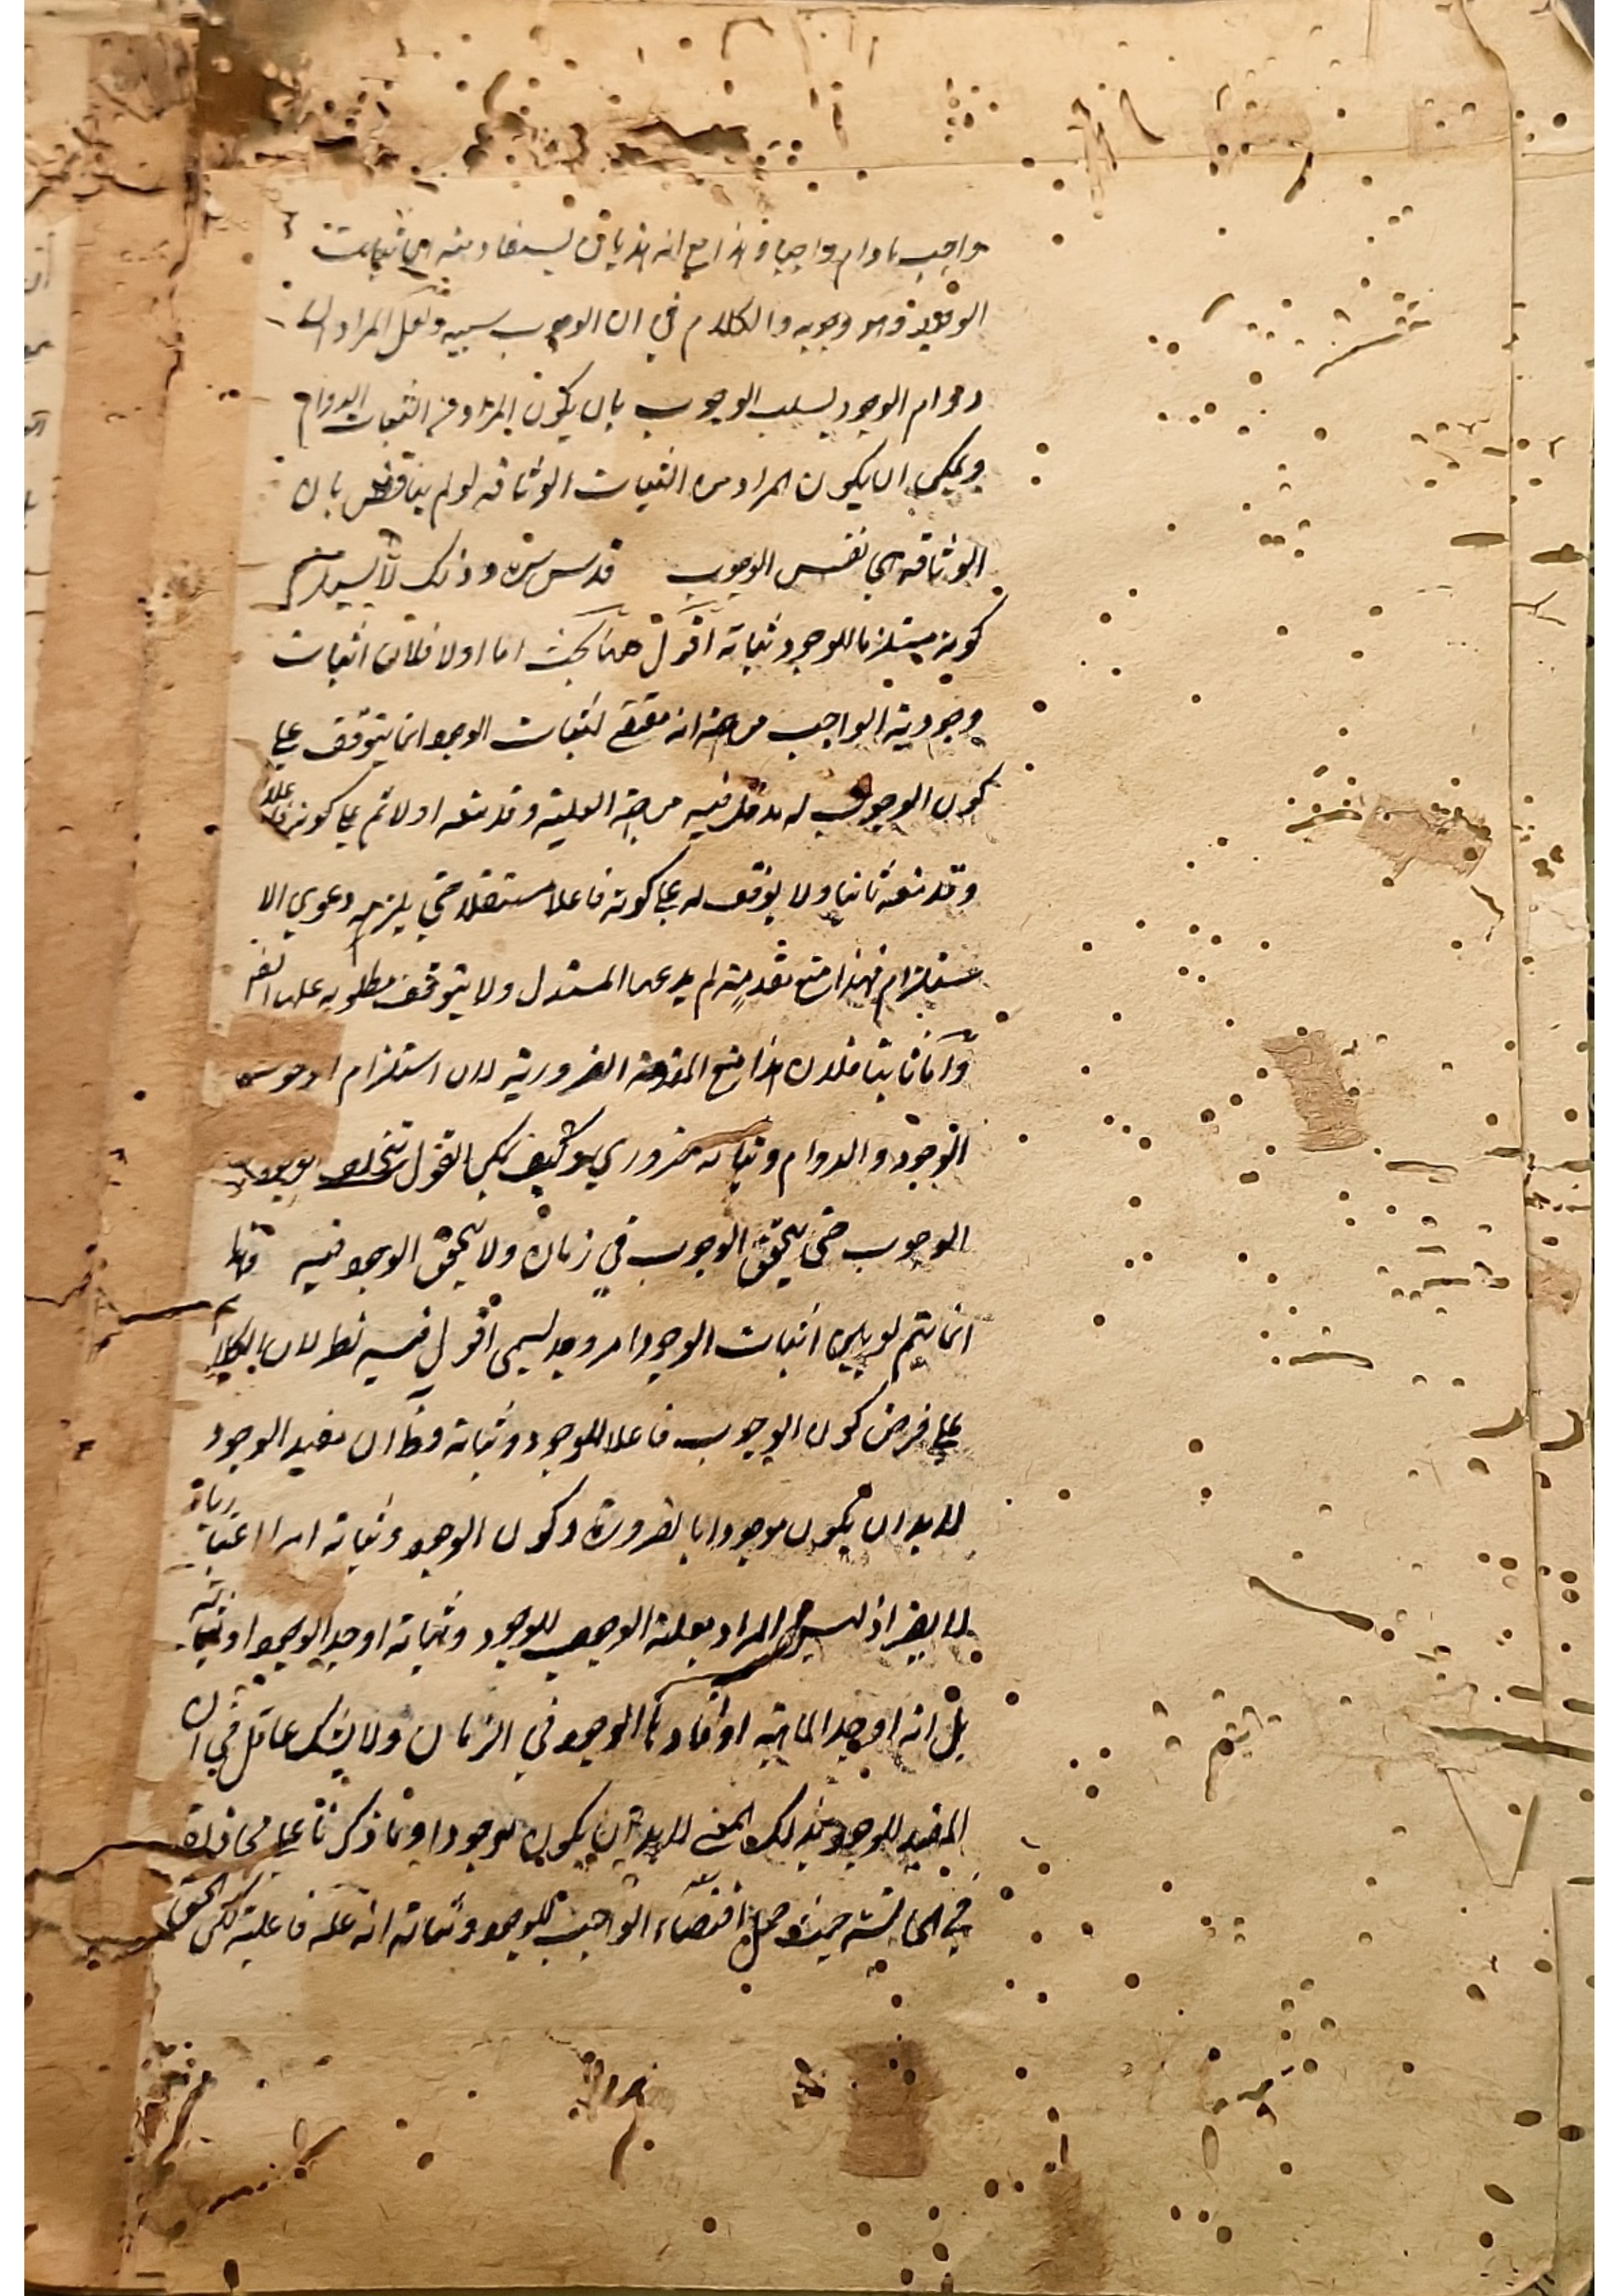 واجب مادام واجبا وهذا مع انه هذيان يستفاد منه ان ثبات
الوجود هو وجوبه والكلام في ان الوجوب سببه ولعل المراد
دوام الوجود بسبب الوجوب بان يكون المراد من الثبات الدوام
ويمكن ان يكون المراد من الثبات الوثاقة لو لم يناقض بان
الوثاقة هي نفس الوجوب قدس سره وذلك لا يستلزم
كونه مستلزما للوجود وثباته اقول ههنا بحث اما اولا فلان اثبات
وجودية الواجب من جهة انه مقتض لثبات الوجود انما يتوقف على
كون الوجوب له مدخل فيه من جهة العلية وقد منعه اولا ثم على كونه فاعلا
وقد منعه ثانيا ولا يوقف له على كونه فاعلا مستقلا حتى يلزمه دعوى الا
ستلزام فهذا منع مقدمة لم يدعها المستدل ولا يتوقف مطلوبه عليها
واما ثانيا فلان هذا منع المقدمة الضرورية لان استلزام الوجوب
الوجود والدوام وثباته ضروري وكيف يمكن القول بتخلف الوجود
الوجوب حتى يتحقق الوجوب في زمان ولا يتحقق الوجود فيه
انما يتم لو يكون اثبات الوجود امر وجد ليس اقول فيه نظر لان الكلام
على فرض كون الوجوب فاعلا للوجود وثباته وظ ان مفيد الوجود
لا بد ان يكون موجودا بالضرورة وكون الوجود وثباته امرا اعتباريا
لا يضر اذ ليس المراد بعلة الوجوب للوجود وثباته اوجد الوجود او ثباته
بل انه اوجد الماهية او افادها الوجود في الزمان ولا يشك عاقل في ان
المفيد للوجود بذلك المعنى لا بد ان يكون موجودا وما ذكرنا على محاذاة
في الحاشية حيث حمل اقتضاء الواجب للوجود وثباته انه علة فاعلية لكن الحق